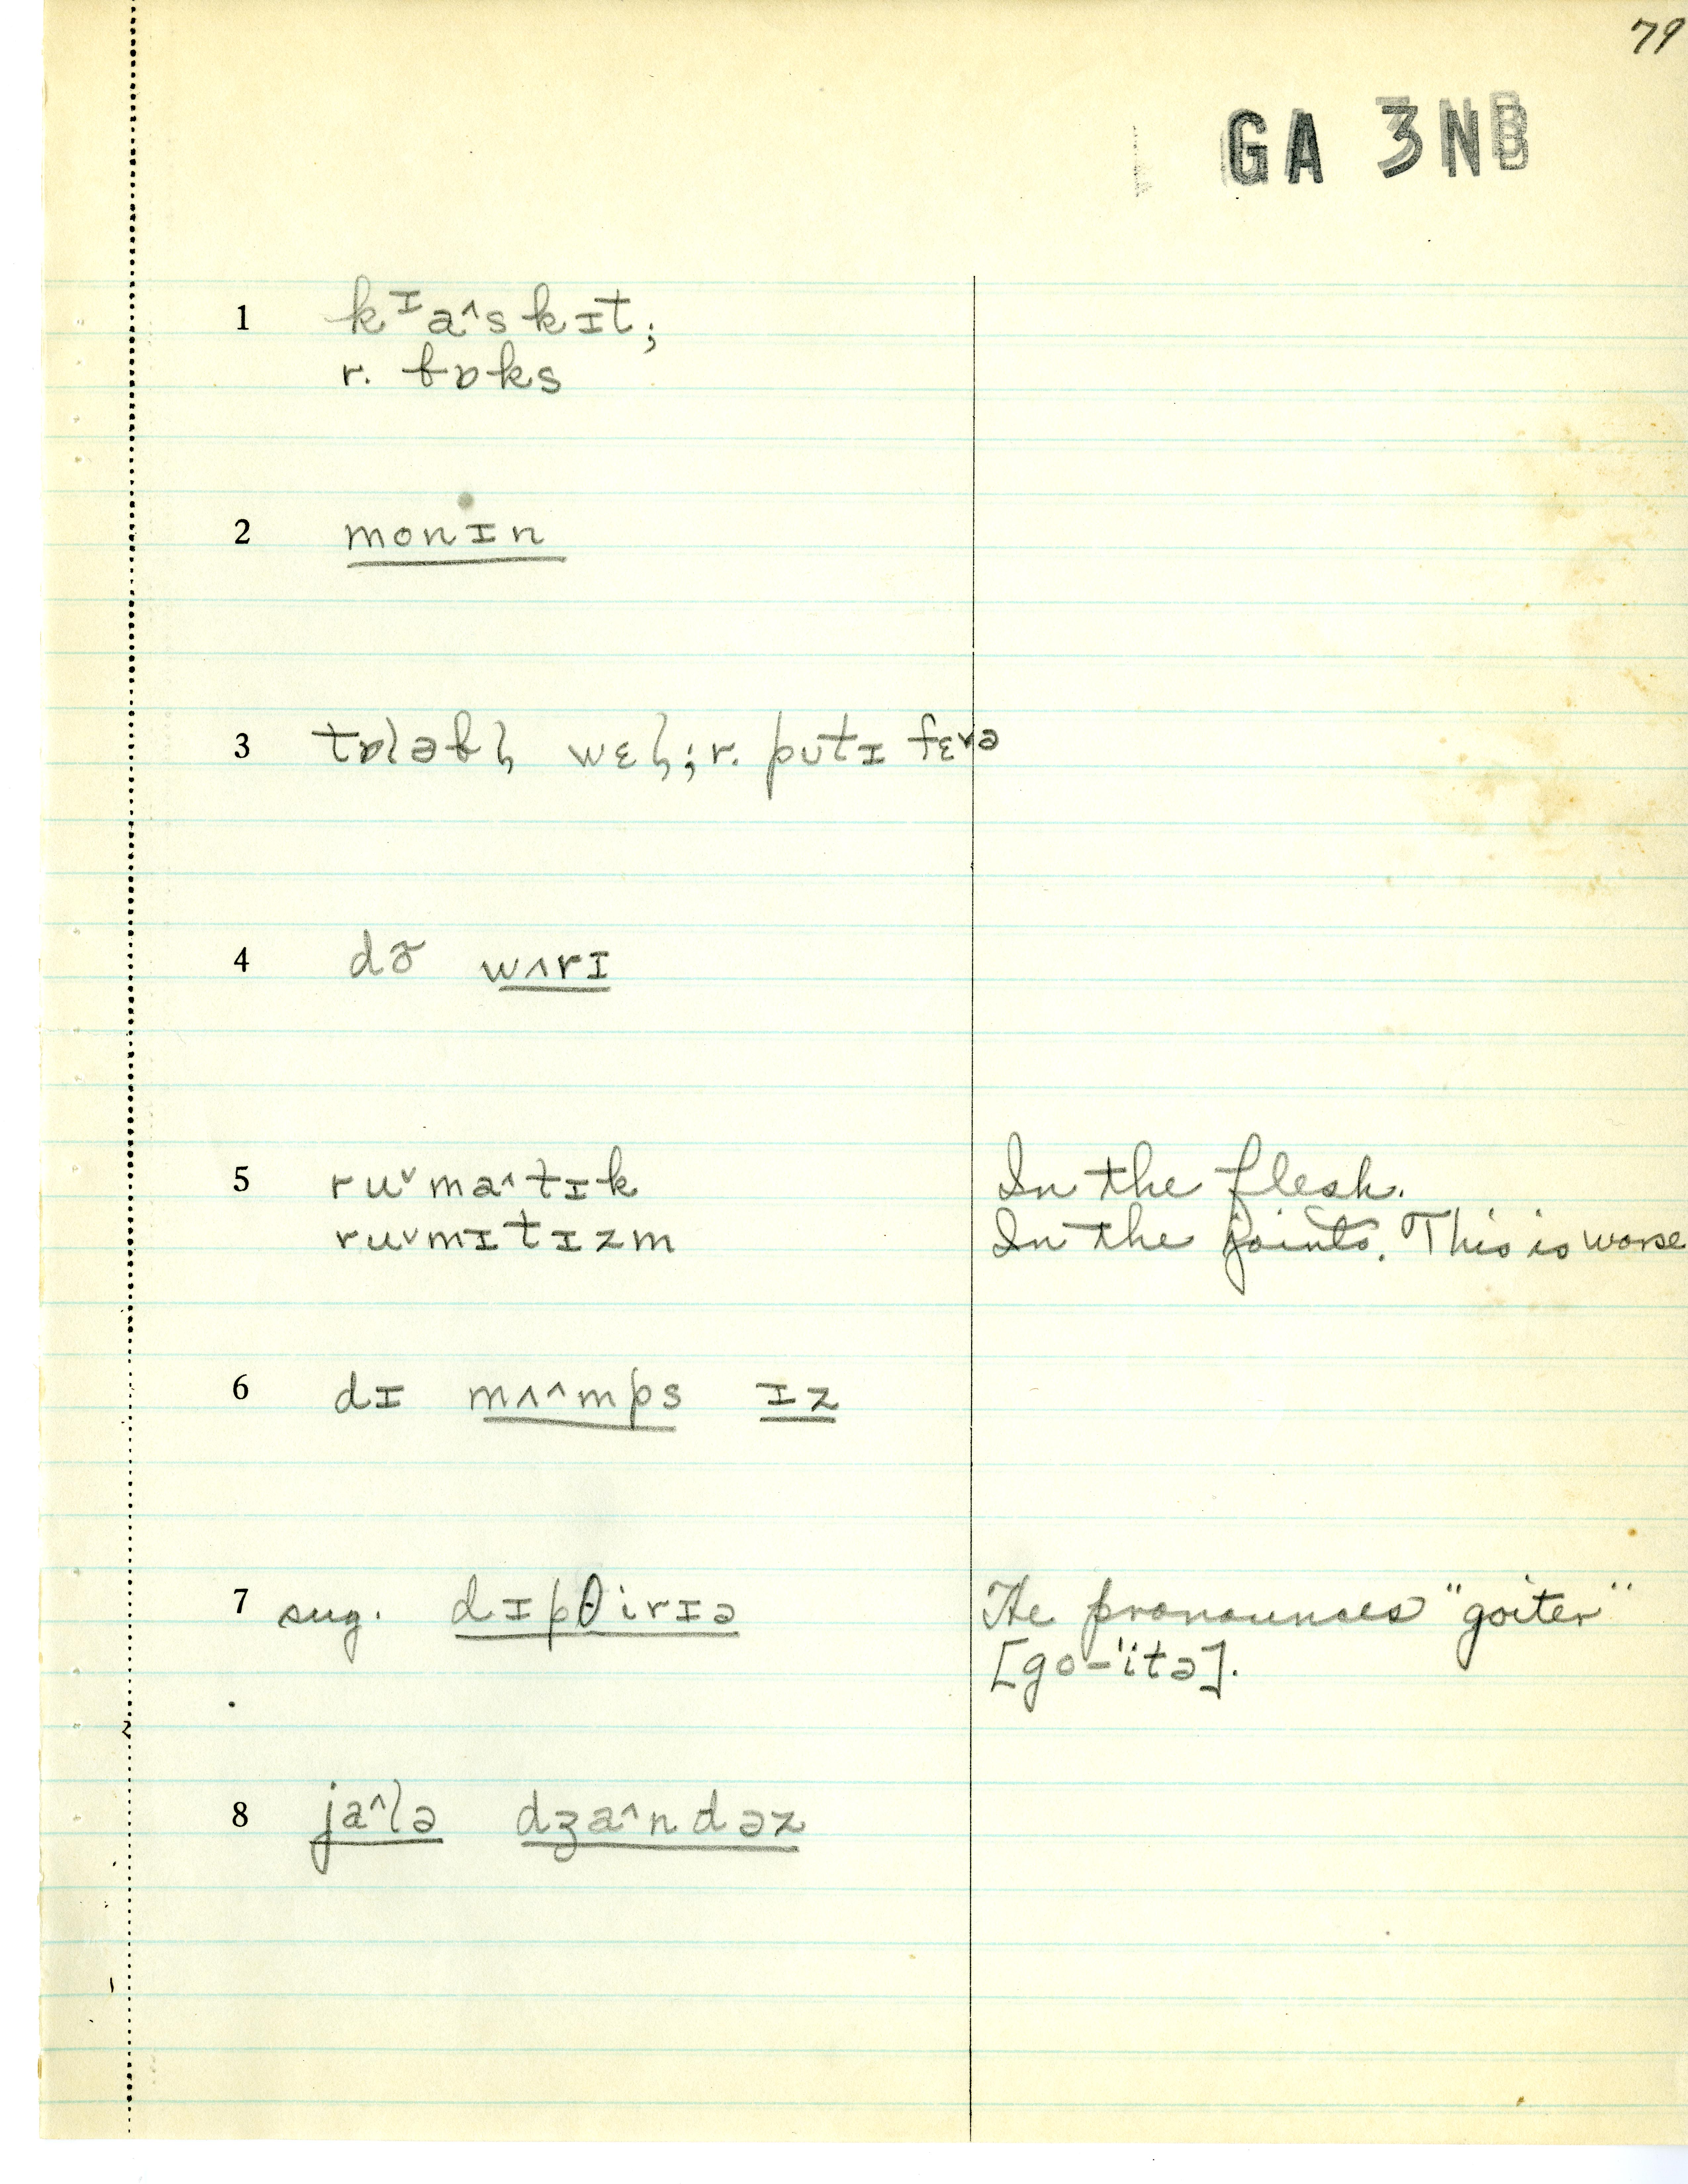 79
GA 3NB
1 kᶦa^skɪt;
r. bɒks
2 monɪn
3 tɒləbļ wɛļ; r. pʊtɪ fɛvə
4 dõ wʌrɪ
5 ruˇma^tɪk In the flesh.
ruˇmɪtɪzm In the joints. This is worse
6 dɪ mʌ^mps ɪz
7 sug. dɪpθirɪə He pronounces "goiter"
[go-'itə].
8 ja^lə dʒa^ndəz